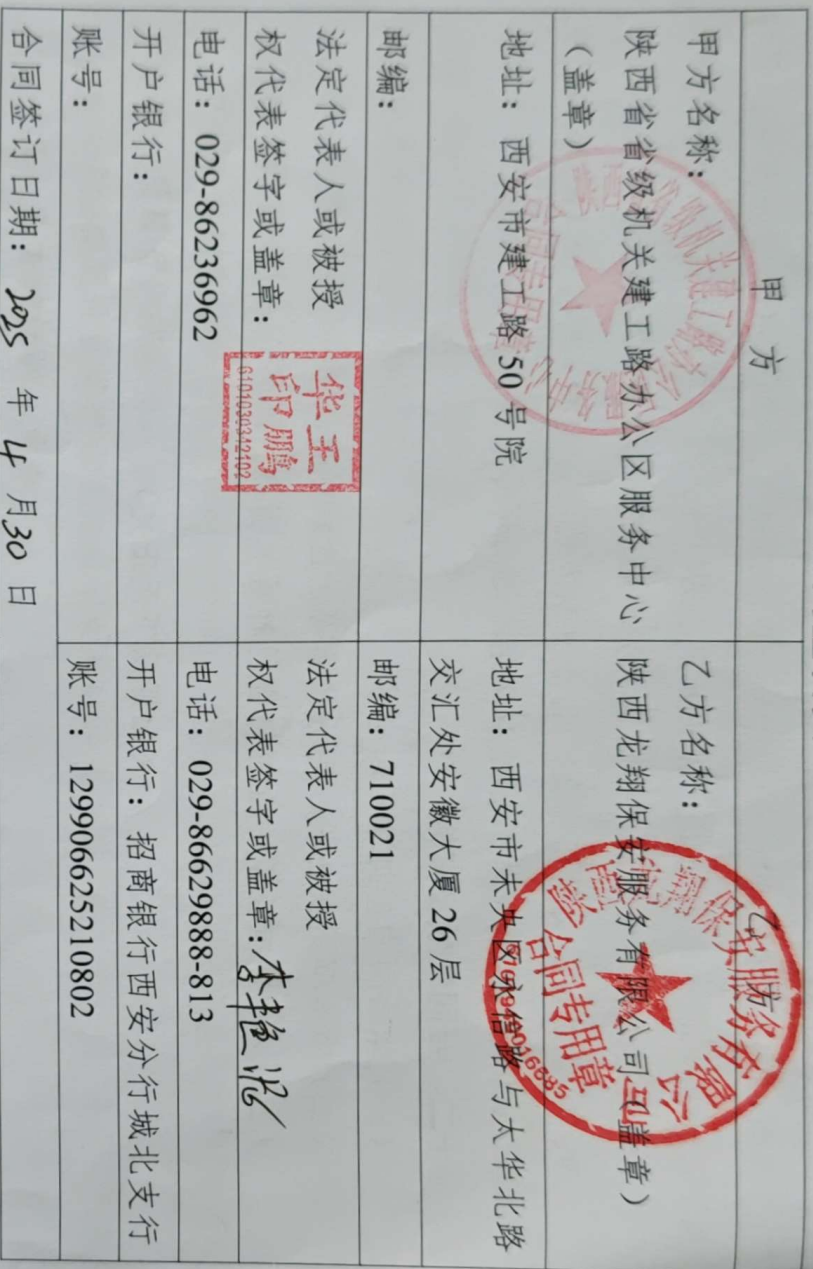 甲 方
乙 方
甲方名称：
陕西省省级机关建工路办公区服务中心
（盖章）
乙方名称：
陕西龙翔保安服务有限公司（盖章）
地址：西安市建工路 50 号院
地址：西安市未央区永信路与太华北路
交汇处安徽大厦 26 层
邮编：
邮编：710021
法定代表人或被授
权代表签字或盖章：
华王
印鹏
6101030342102
法定代表人或被授
权代表签字或盖章：
电话：029-86236962
电话：029-86629888-813
开户银行：
开户银行：招商银行西安分行城北支行
账号：
账号：129906625210802
合同签订日期：2025 年 4 月 30 日
陕西龙翔保安服务有限公司
合同专用章